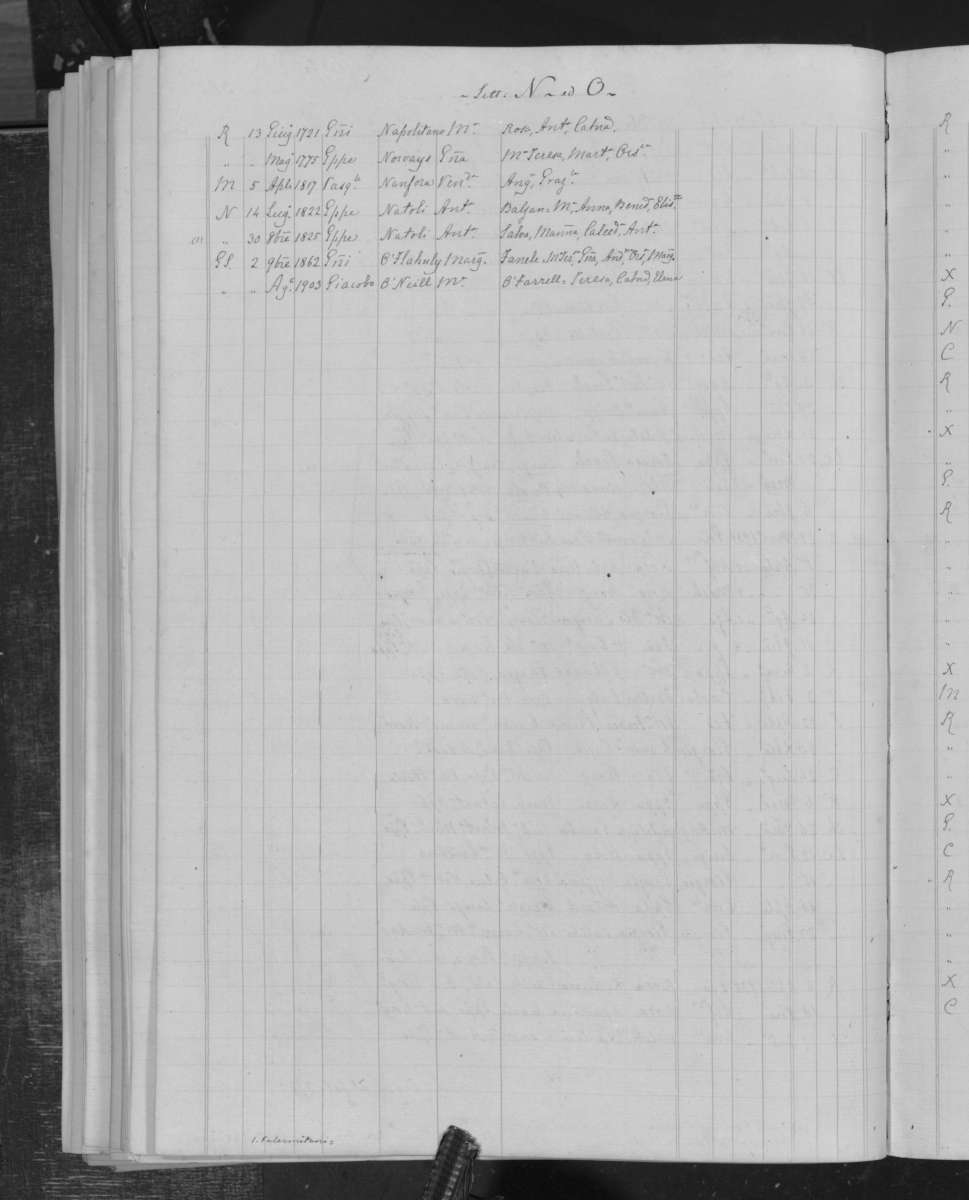 ~ Lett: N ~ ed O ~
R 13 Giug 1721 Gñi Napolitano Mª Rosa, Antª, Catnaª.
" " Mag 1775 Gppe Norvays Gña Mª Teresa, Martª, Orsª
M 5 Aple 1817 Pasqle Nanfora Vendª Ang, Grazª
N 14 Lug 1822 Gppe Natoli Antª Balzan. Mª, Anna, Bened, Elisth
" 30 8bre 1825 Gppe Natoli Antª Salva, Marina, Calced, Antª
GS. 2 9bre 1862 Gñi O'Flahuly Marg. Fanele MªTer, Gña, And, Ors, Marg.
" " Agº 1903 Giacobo O'Neill Mª O'Farrell. Teresa, Catna, Elena
R
"
"
"
"
"
X
P.
N
C
R
"
X
"
P.
R
"
"
"
"
X
M
R
"
"
X
P.
C
R
"
"
"
X
C